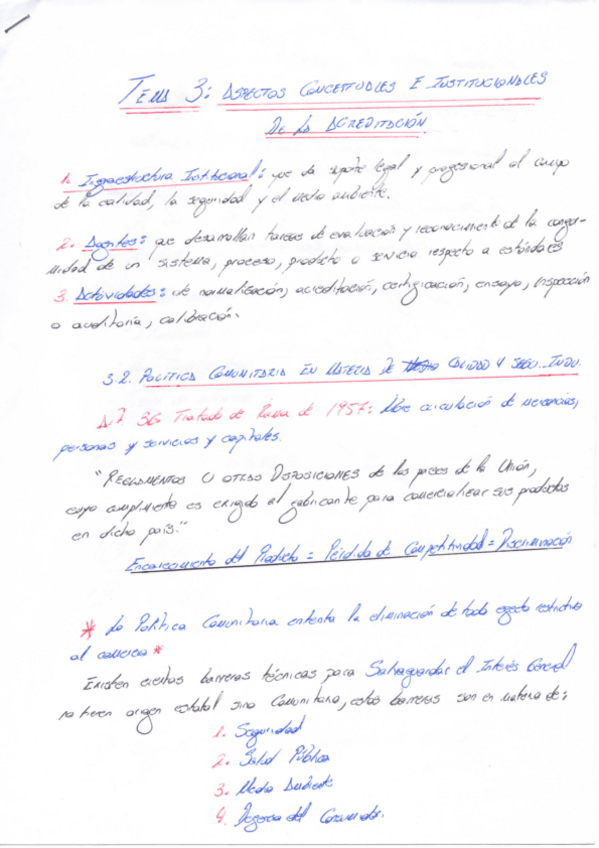 TEMA 3: ASPECTOS CONCEPTUALES E INSTITUCIONALES
DE LA ACREDITACIÓN
1. Infraestructura Institucional: que da soporte legal y profesional al campo
de la calidad, la seguridad y el medio ambiente.
2. Agentes: que desarrollan tareas de evaluación y reconocimiento de la confor-
midad de un sistema, proceso, producto o servicio respecto a estándares
3. Actividades: de normalización, acreditación, certificación, ensayo, inspección
o auditoría, calibración.
3.2. POLÍTICA COMUNITARIA EN MATERIA DE CALIDAD Y SEGU. INDU.
Art 36 Tratado de Roma de 1957: libre circulación de mercancías,
personas y servicios y capitales.
"REGLAMENTOS U OTRAS DISPOSICIONES de los países de la Unión,
cuyo cumplimiento es exigido al fabricante para comercializar sus productos
en dicho país."
Encarecimiento del Producto = Pérdida de Competitividad = Discriminación
* La Política Comunitaria intenta la eliminación de todo efecto restrictivo
al comercio *
Existen ciertas barreras técnicas para Salvaguardar el Interés General
no tienen origen estatal sino Comunitario, estas barreras son en materia de:
1. Seguridad
2. Salud Pública
3. Medio Ambiente
4. Defensa del Consumidor.